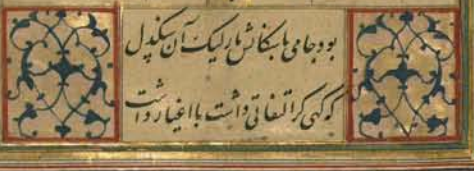 بود جامی با سگانش یار لیک آن سنگدل
کو گهی گر التفاتی داشت با اغیار داشت